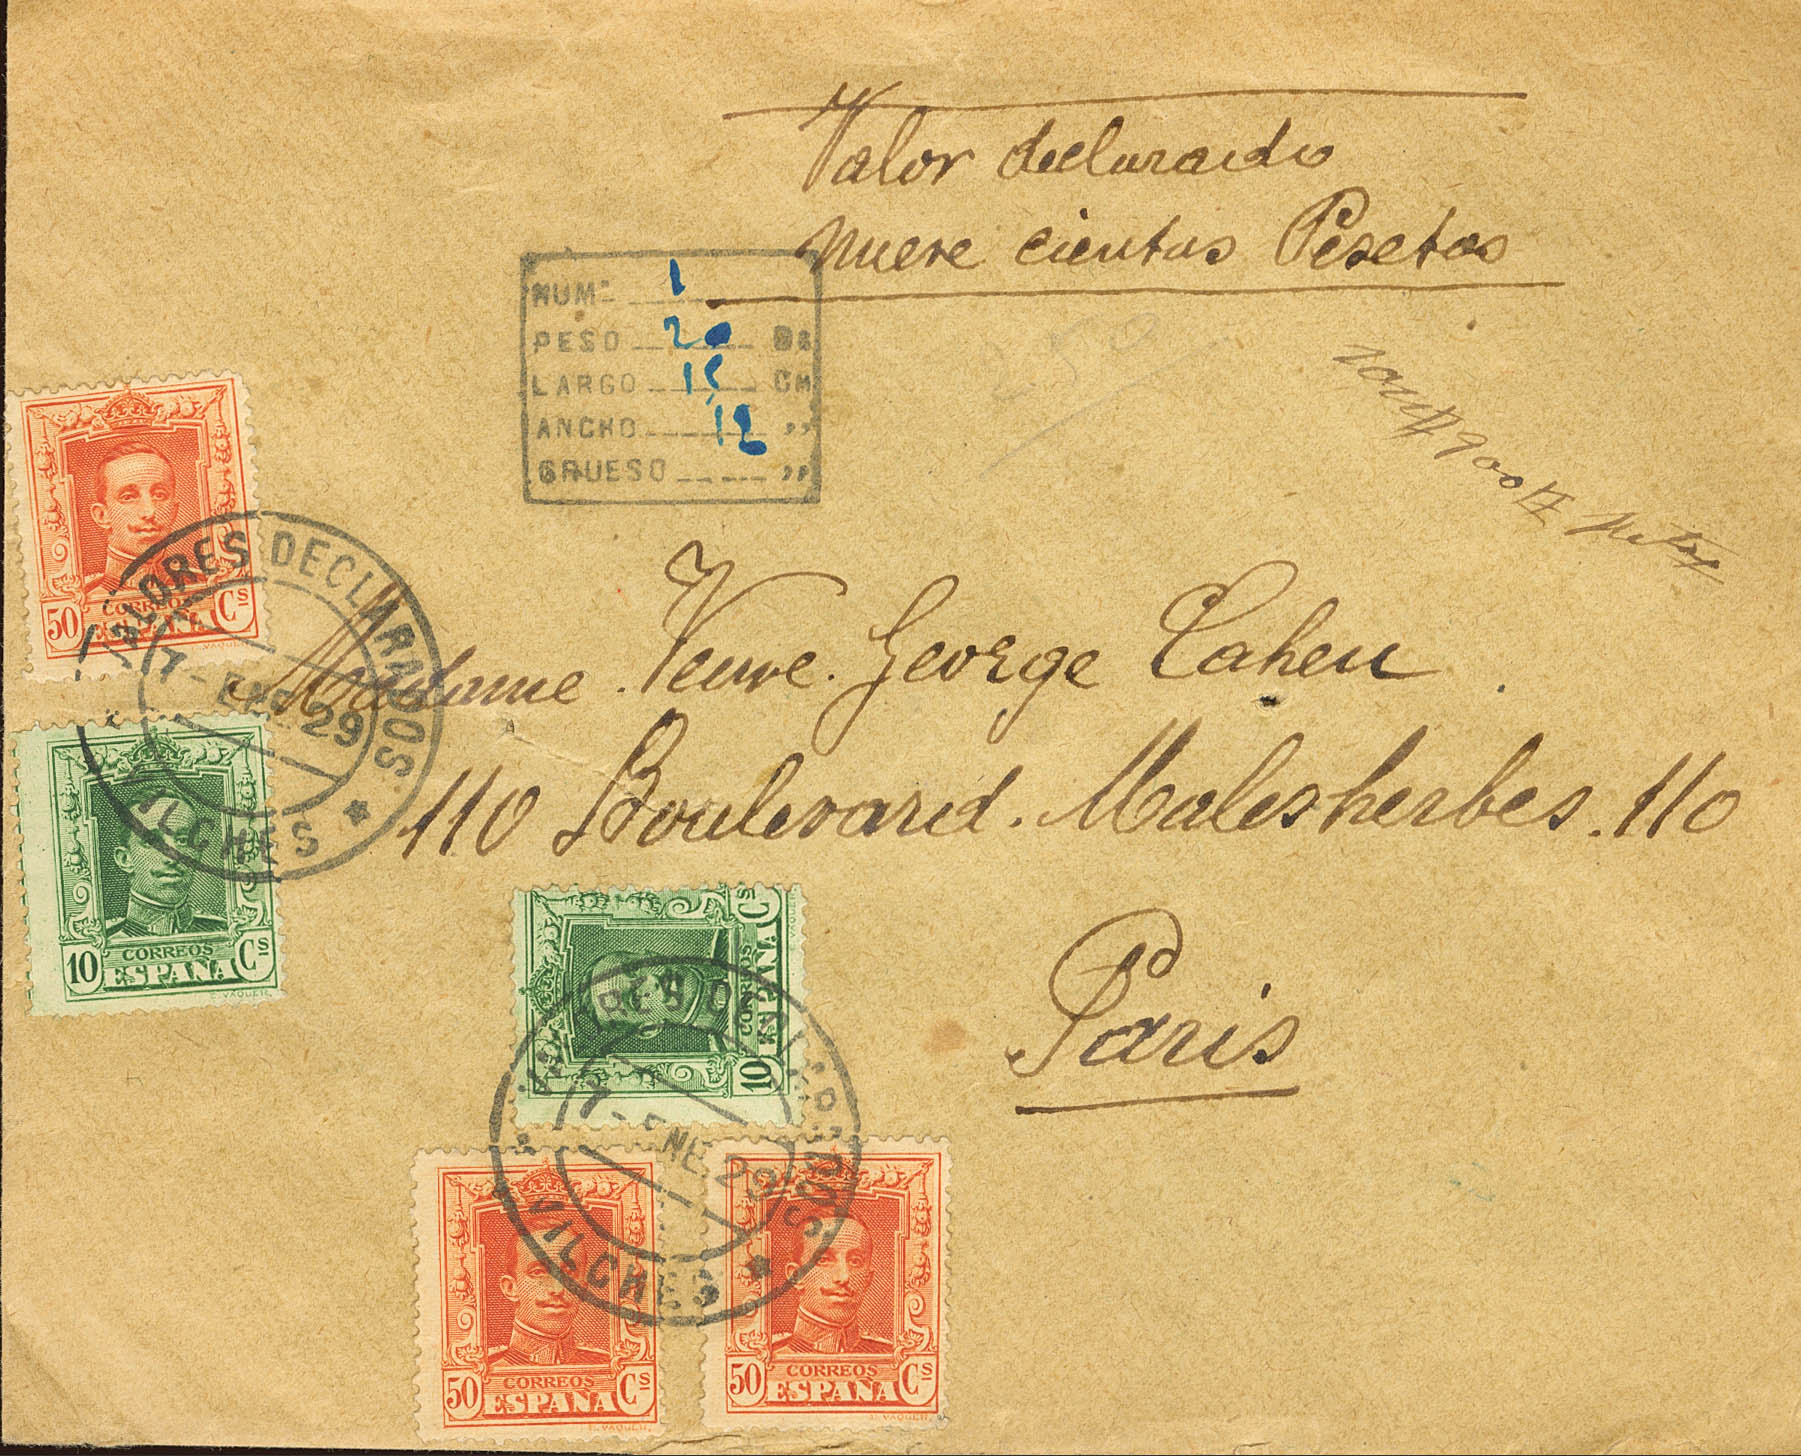 Valor declaraido
nueve cientas Pesetas
NUM.º 1
PESO 20 DG
LARGO 15 CM
ANCHO 12 ,,
GRUESO ,,
Madame Veuve George Cahen
110 Boulevard Malesherbes 110
Paris
50 CORREOS Cs
ESPAÑA
VAQUER
VALORES DECLARADOS.
7-ENE.29
VILCHES
10 CORREOS Cs
ESPAÑA
E. VAQUER
10 CORREOS Cs
ESPAÑA
7-ENE.29
VILCHES
50 CORREOS Cs
ESPAÑA
E. VAQUER
50 CORREOS Cs
ESPAÑA
E. VAQUER